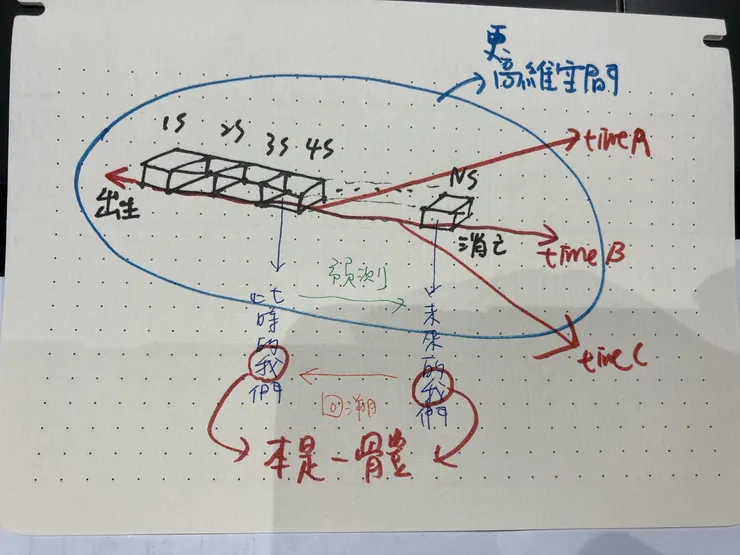 更
高維空間
1S 2S 3S 4S
NS
time A
出生
消亡
time B
time C
預測
此時的我們
未來的我們
回溯
本是一體